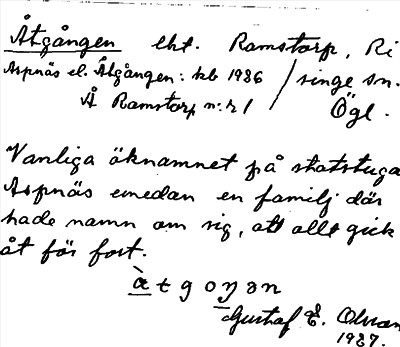 Åtgången lht. Ramstorp, Ri
Aspnäs el. Åtgången: kb 1936 / singe sn.
Å Ramstorp n:r 1 Ögl.
Vanliga öknamnet på statstuga
Aspnäs emedan en familj där
hade namn om sig, att allt gick
åt för fort.
àtgoŋən
Gustaf E. Olsson
1937.